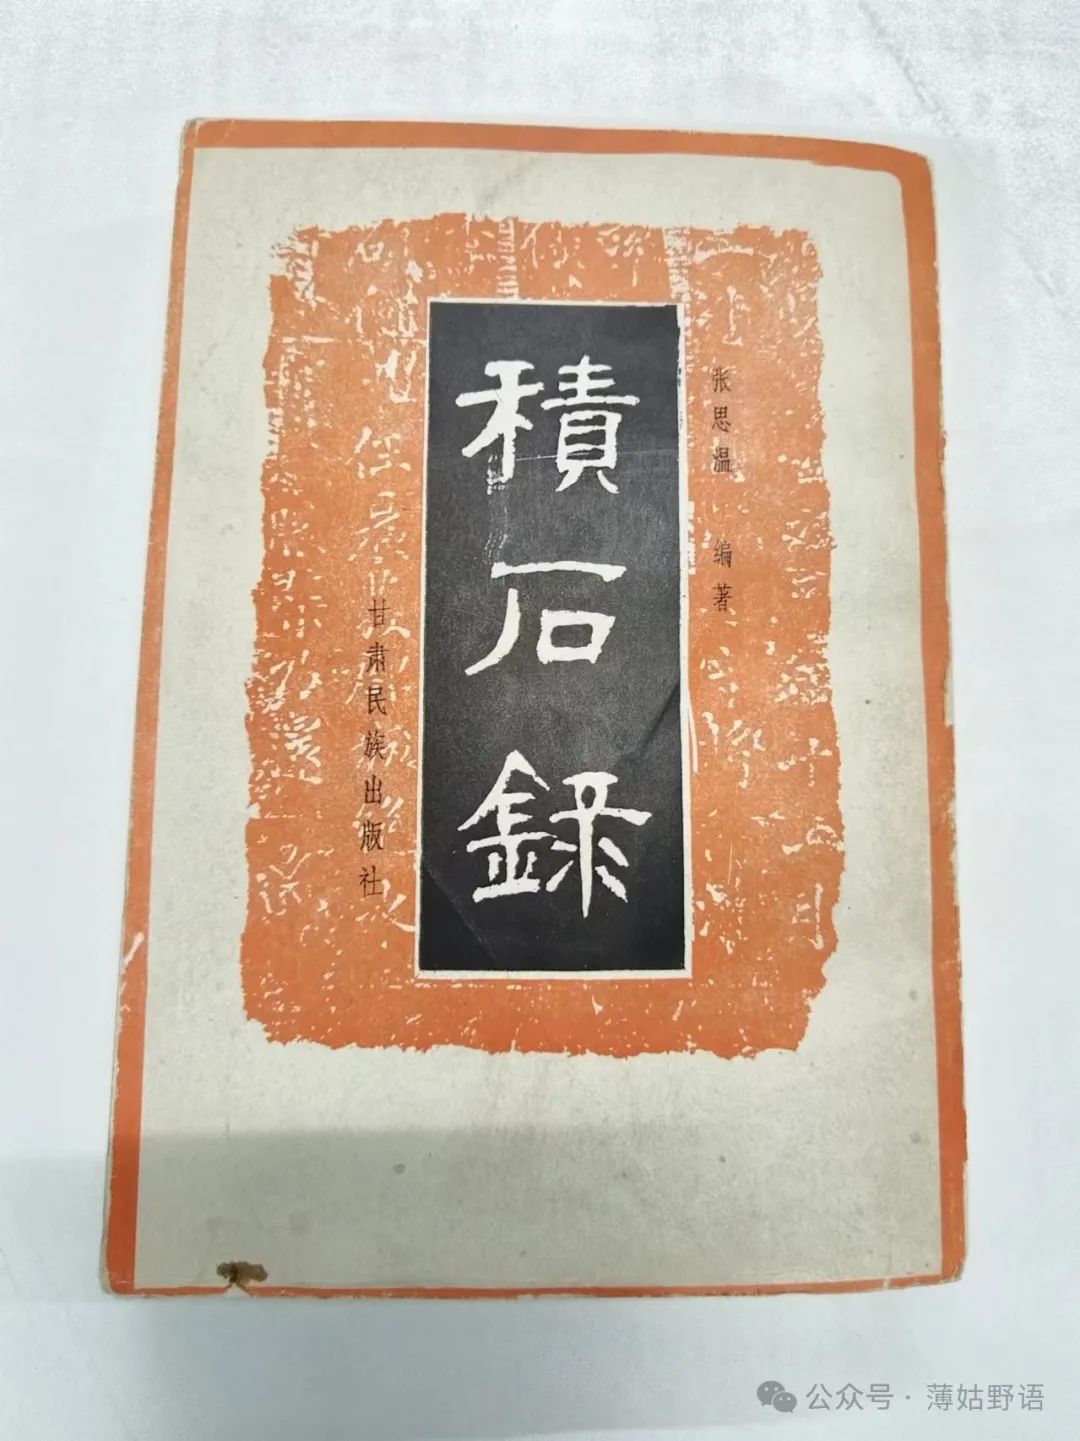 張思温 编著
積石録
甘肃民族出版社
公众号·薄姑野语